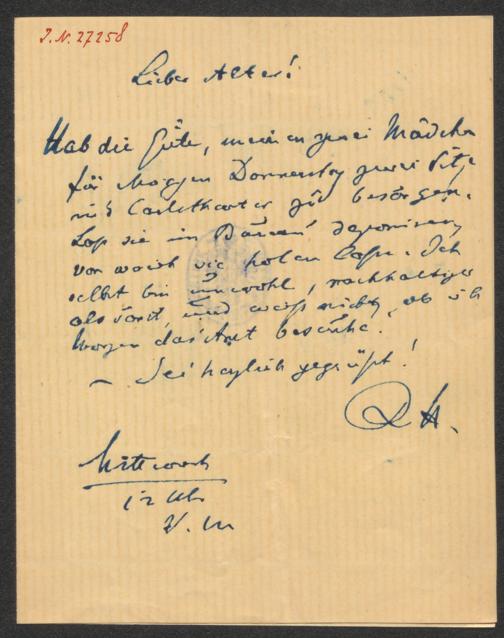 J.N. 27258
Lieber Alter!
Hab die Güte, meinen zwei Mädchen
für Morgen Donnerstag zwei Sitze
ins Carltheater zu besorgen.
Lass sie im Bureau deponieren,
von wo ich sie holen lasse. Ich
selbst bin unwohl, nachhaltiger
als sonst, und weiss nicht, ob ich
Morgen das Amt besuche.
– Sei herzlich gegrüsst!
Mittwoch
12 Uhr
V. M